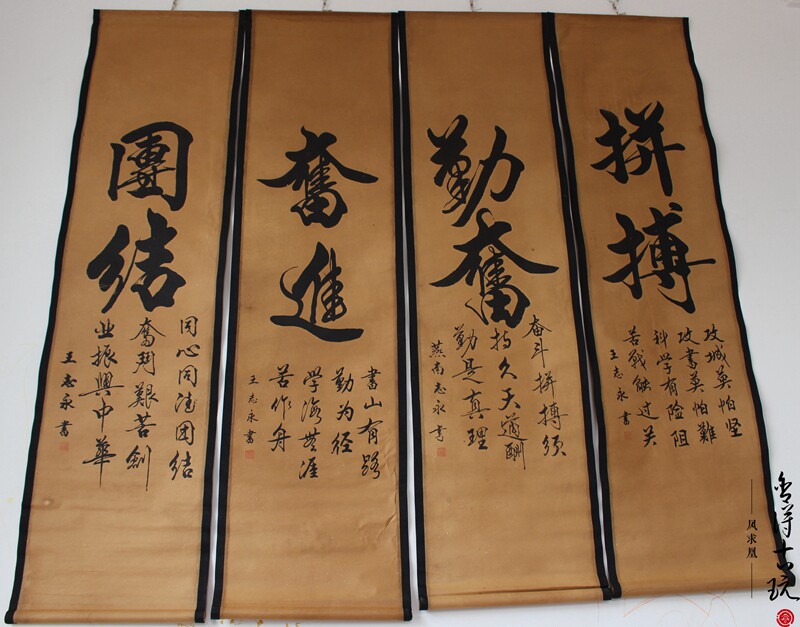 拼搏
攻城莫怕坚
攻書莫怕難
科学有险阻
苦战能过关
王志永書
勤奮
奋斗拼搏须
持久天道酬
勤是真理
燕南志永書
奮進
書山有路
勤为径
学海無涯
苦作舟
王志永書
團结
同心同德團结
奮鬥艱苦創
业振興中華
王志永書
舍得古玩
凤求凰